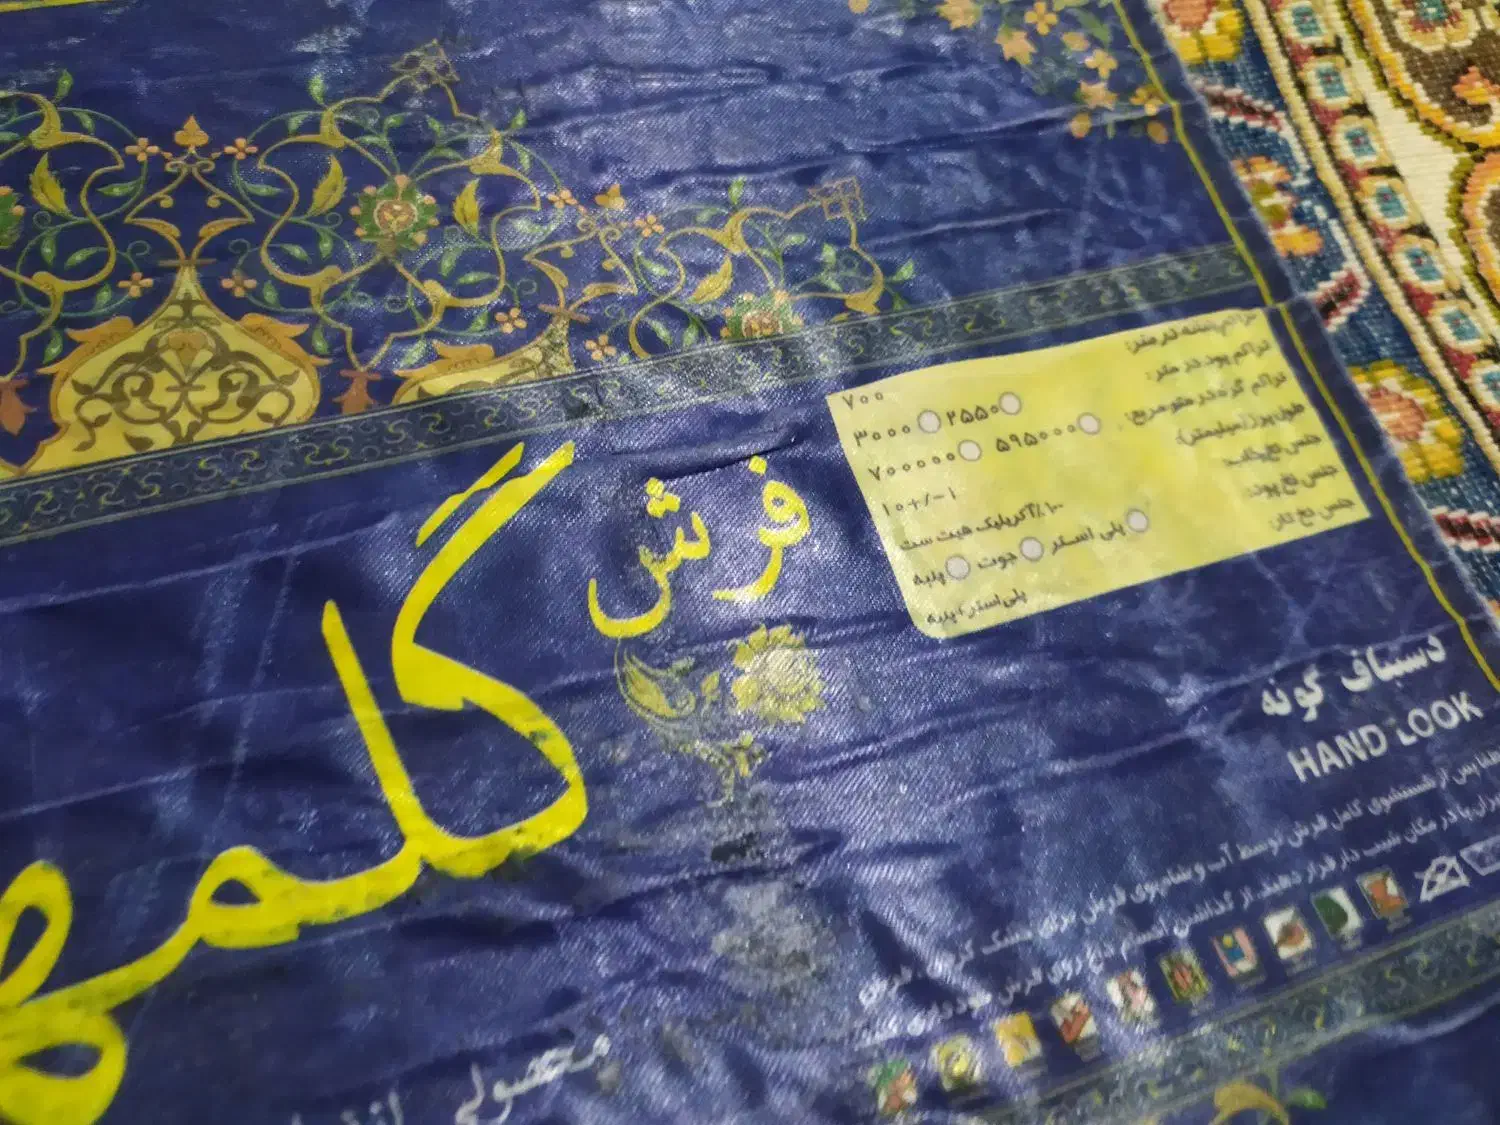 تراکم شانه در متر:
۷۰۰
تراکم پود در متر:
۳۰۰۰ ۲۵۵۰
تراکم گره در متر مربع:
۷۰۰۰۰۰ ۵۹۵۰۰۰
طول پرز(میلیمتر):
۱۰+/-۱
جنس نخ خاب:
۱۰۰٪ آکریلیک هیت ست
جنس نخ پود:
پنبه جوت پلی استر
جنس نخ تار:
پلی استر+پنبه
فرش
گلمه
دستباف گونه
HAND LOOK
پس از شستشوی کامل فرش توسط آب و شامپوی فرش برای خشک کردن
را در مکان شیب دار قرار دهید. از گذاشتن اجسام داغ روی فرش خودداری
محصولی از